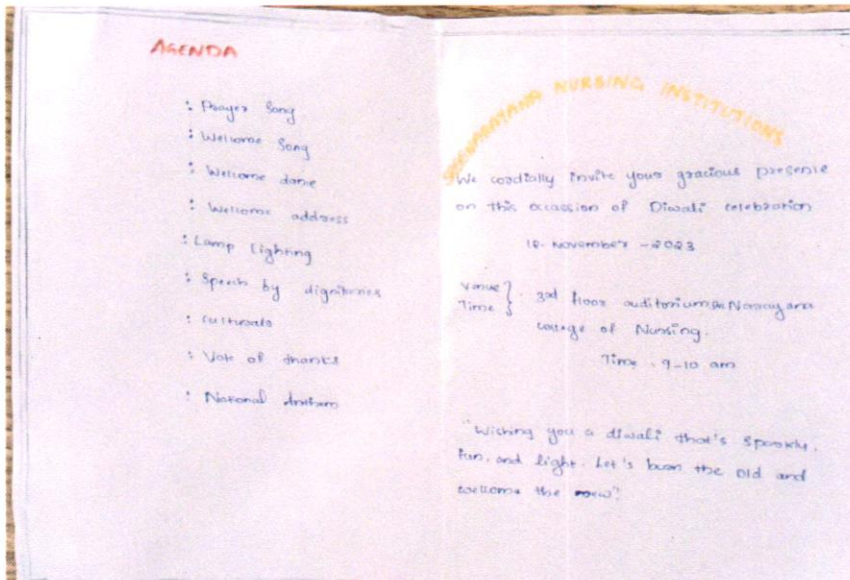 AGENDA
: Prayer Song
: Welcome Song
: Welcome dance
: Welcome address
: Lamp Lighting
: Speech by dignitaries
: Culturals
: Vote of thanks
: National Anthem
NURSING INSTITUTIONS
We cordially invite your gracious presence
on this occassion of Diwali celebration
November - 2023
Venue
Time } 3rd floor auditorium Narayana
college of Nursing.
Time . 9-10 am
"Wishing you a diwali that's Sparkly,
fun, and light. Let's burn the old and
welcome the new"